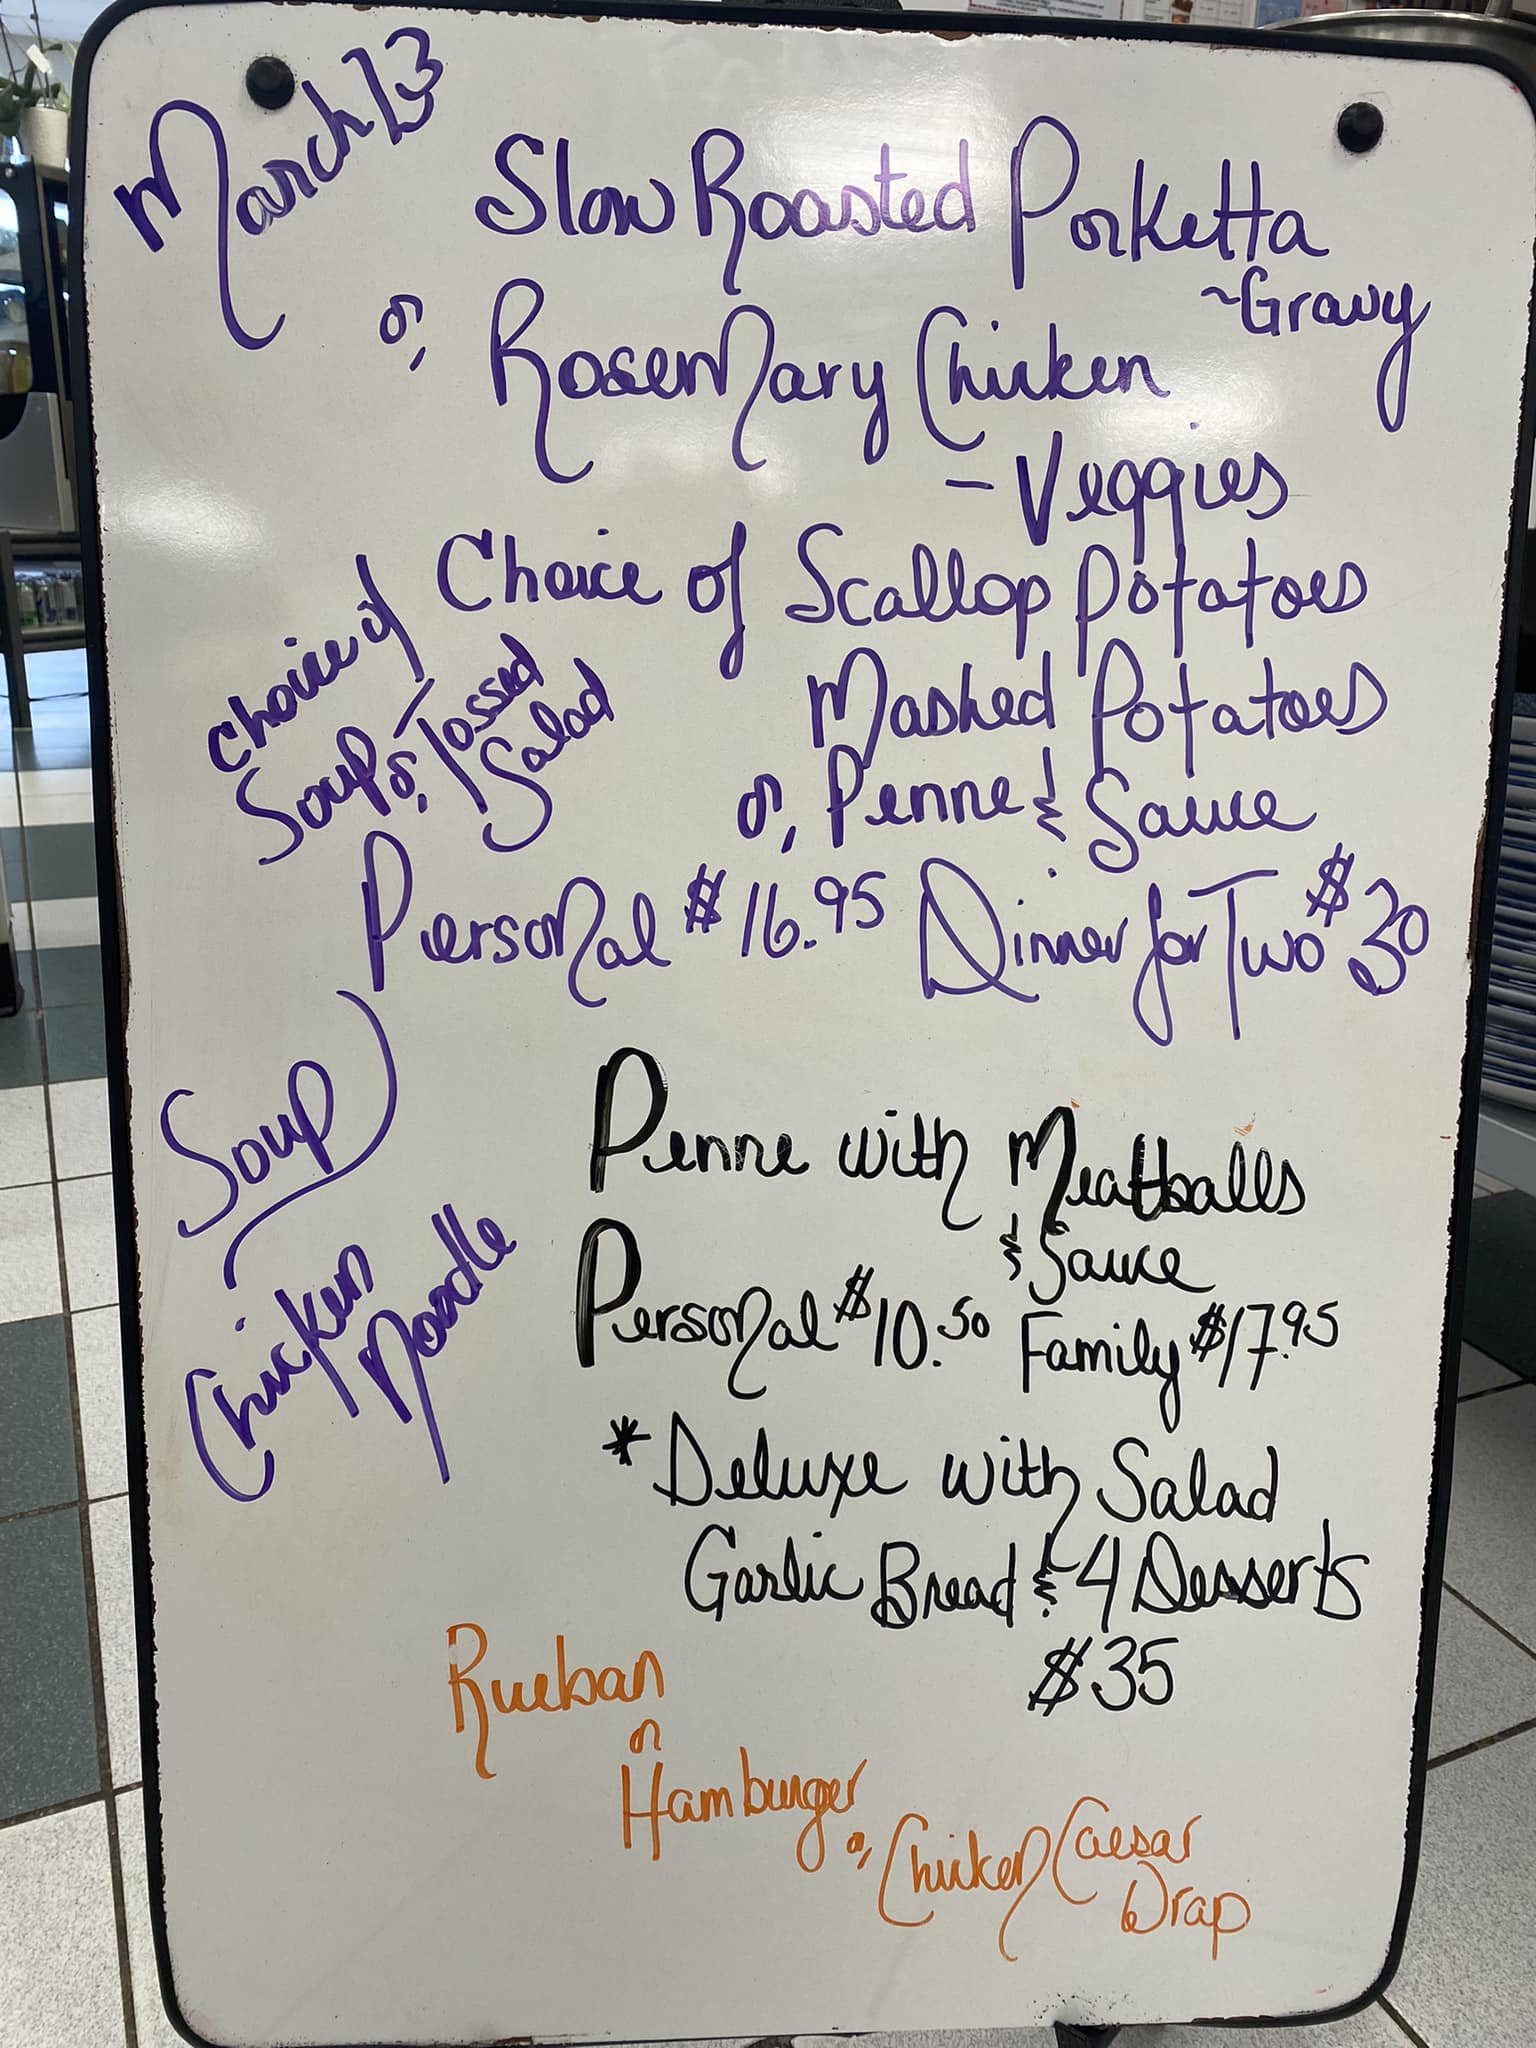 March 13
Slow Roasted Porketta
~Gravy
or, Rosemary Chicken
- Veggies
Choice of Scallop Potatoes
Mashed Potatoes
or, Penne & Sauce
Choice of
Soup or, Tossed
Salad
Personal $16.95 Dinner for Two $30
Soup
Chicken
Noodle
Penne with Meatballs
& Sauce
Personal $10.50 Family $17.95
*Deluxe with Salad
Garlic Bread & 4 Desserts
$35
Rueban
or
Hamburger
or, Chicken Caesar
Wrap